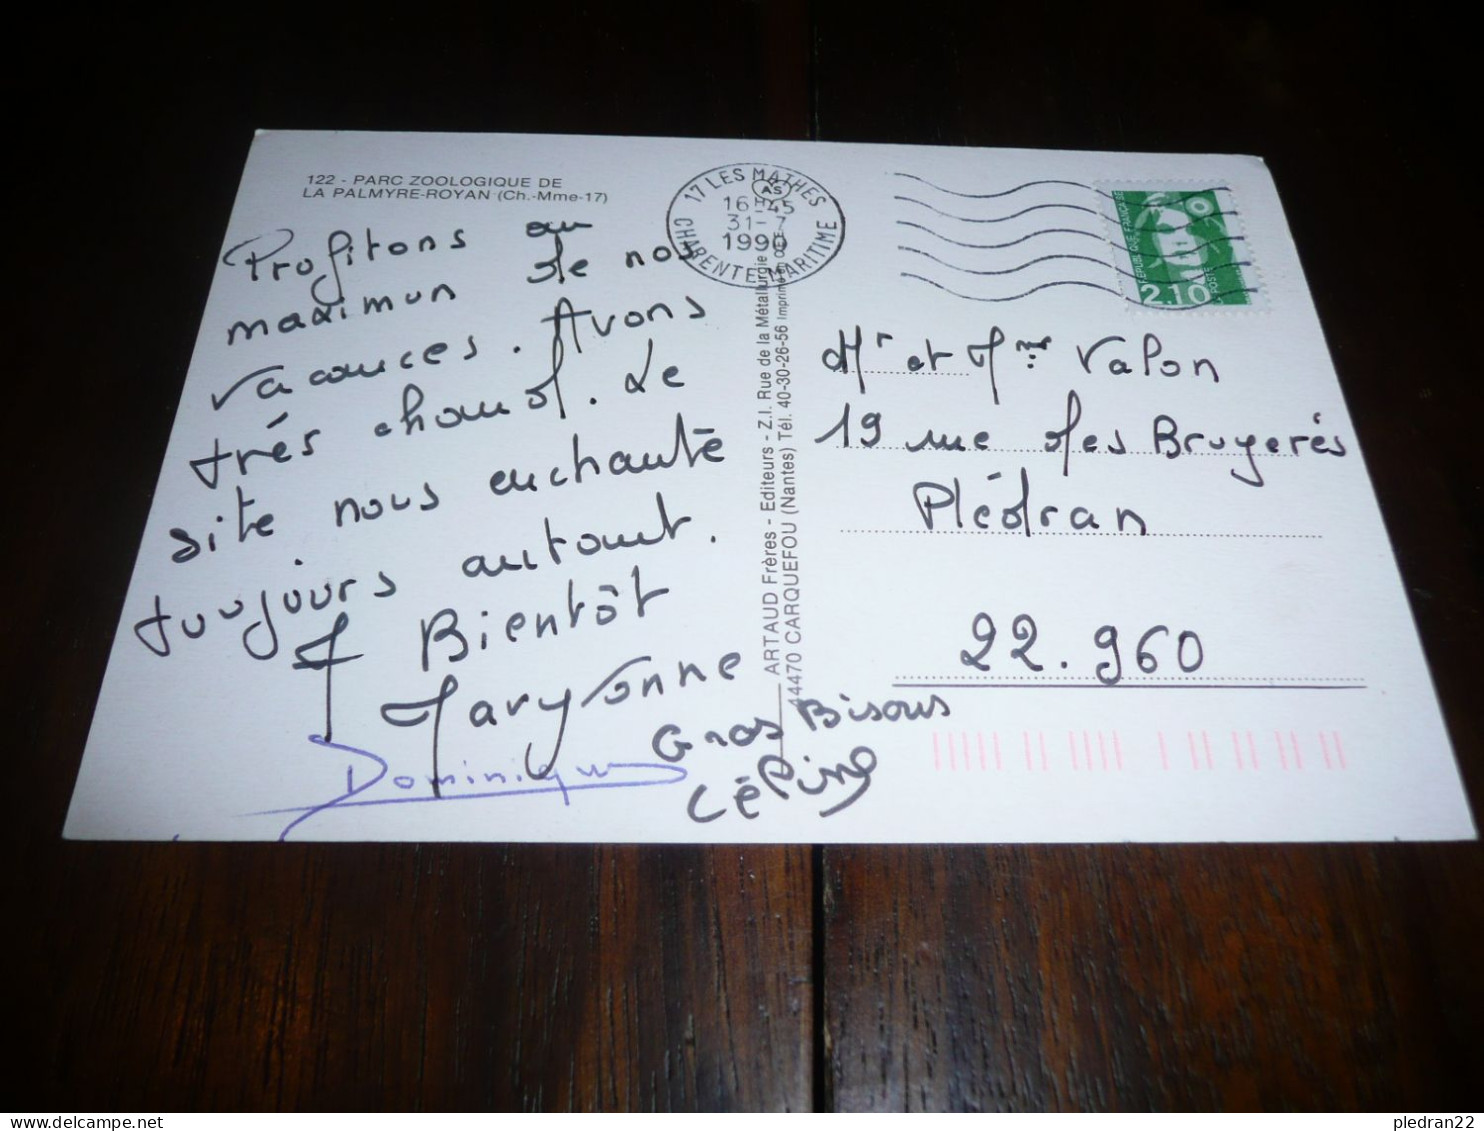 122 - PARC ZOOLOGIQUE DE
LA PALMYRE-ROYAN (Ch.-Mme-17)
Profitons au
maximun de nos
vacances. Avons
très chaud. Le
site nous enchante
toujours autant.
A Bientôt
Maryvonne
Dominique
Gros Bisous
Céline
17 LES MATHES
AS
16H45
31-7
1990
CHARENTE MARITIME
REPUBLIQUE FRANCAISE
2.10
POSTE
ARTAUD Frères - Editeurs - Z.I. Rue de la Métallurgie
44470 CARQUEFOU (Nantes) Tél. 40-30-26-56 Imprimé en CEE
Mr et Mme Valon
19 rue des Bruyerés
Plédran
22.960
pledran22